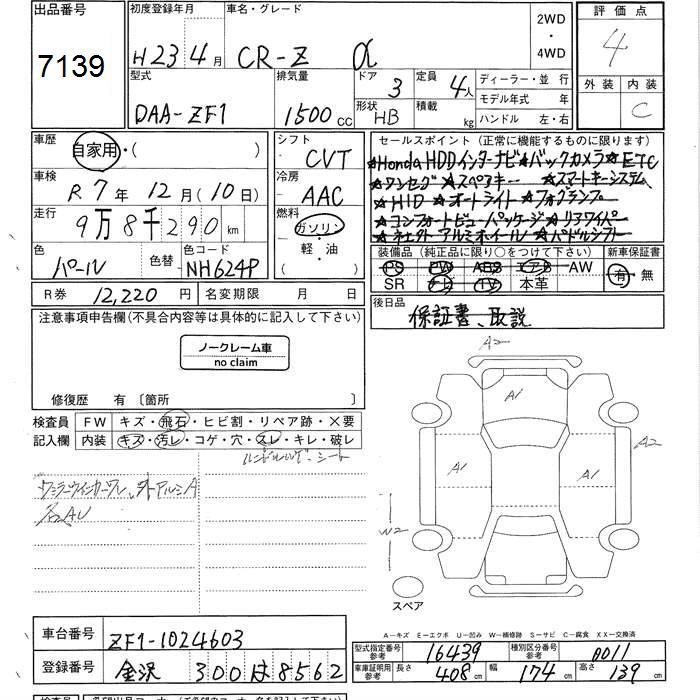 出品番号 初度登録年月 車名・グレード 2WD・4WD 評価点
7139 H23年4月 CR-Z α 4
型式 排気量 ドア 3 定員 4人 ディーラー・並行 外装 内装
DAA-ZF1 1500cc 形状 HB 積載 kg モデル年式 年 C
ハンドル 左・右
車歴 自家用・( ) シフト CVT セールスポイント (正常に機能するものに限ります)
★Honda HDDインターナビ★バックカメラ★ETC
車検 R7年12月(10日) 冷房 AAC ★ワンセグ ★スペアキー ★スマートキーシステム
★HID ★オートライト★フォグランプ
走行 9万8千290km 燃料 ガソリン・軽・油 ★コンフォートビューパッケージ★リアワイパー
★純正アルミホイール★パドルシフト
色 パール 色替 色コード NH624P 装備品 (純正品に限り○をつけて下さい) 新車保証書
PS PW ABS エアB AW 有・無
SR ナビ TV 本革
R券 12,220円 名変期限 月 日 後日品
保証書、取説
注意事項申告欄(不具合内容等は具体的に記入して下さい)
ノークレーム車
no claim
修復歴 有 〔箇所 〕
検査員 FW キズ・飛石・ヒビ割・リペア跡・×要
記入欄 内装 キズ・汚レ・コゲ・穴・スレ・キレ・破レ
A2
A1
A2
A1
A1
W2
スペア
A―キズ E―エクボ U―凹み W―補修跡 S―サビ C―腐食 XX―交換済
車台番号 ZF1-1024603
型式指定番号 参考 16439 種別区分番号 参考 A011
登録番号 金沢 300 は 8562
車庫証明用 参考 長さ 408cm 幅 174cm 高さ 139cm